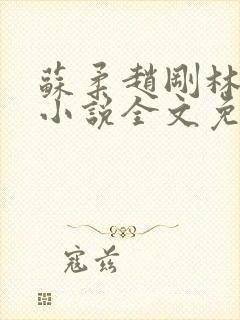 蘇柔趙剛林
小說全文免
寇茲